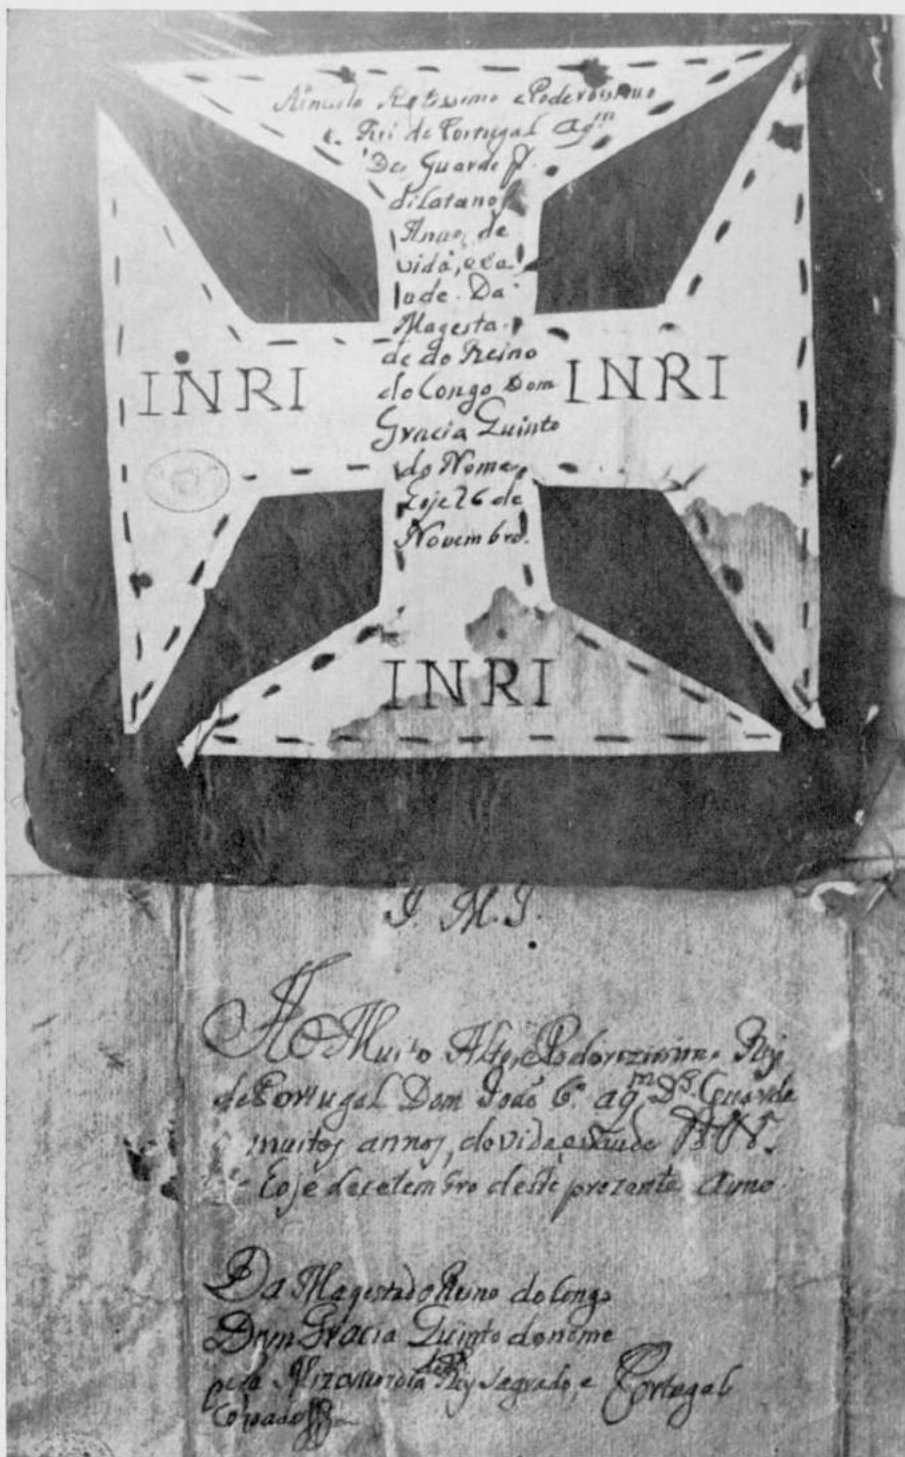 Rotissimo e Poderossimo
e. Rei de Portugal agᵐ
Ds Guarde P.
dilatanos
Annos de
vida, e sa
ude. Da
Magesta
de do Reino
do Congo Dom
Gracia Quinto
do Nome,
Eoje 26 de
Novembro.
INRI
INRI
INRI
J. M. J.
Ao Muito Alto, e Poderozissimo Rey
de Portugal Dom João 6.º agᵐ Dˢ Guarde
muitos annos, de vida e Saude
Eoje de setembro deste prezante Anno.
Da Magestad o Reino do Congo
Dom Gracia Quinto do nome
pela de Rey Sagrado, e Portugal